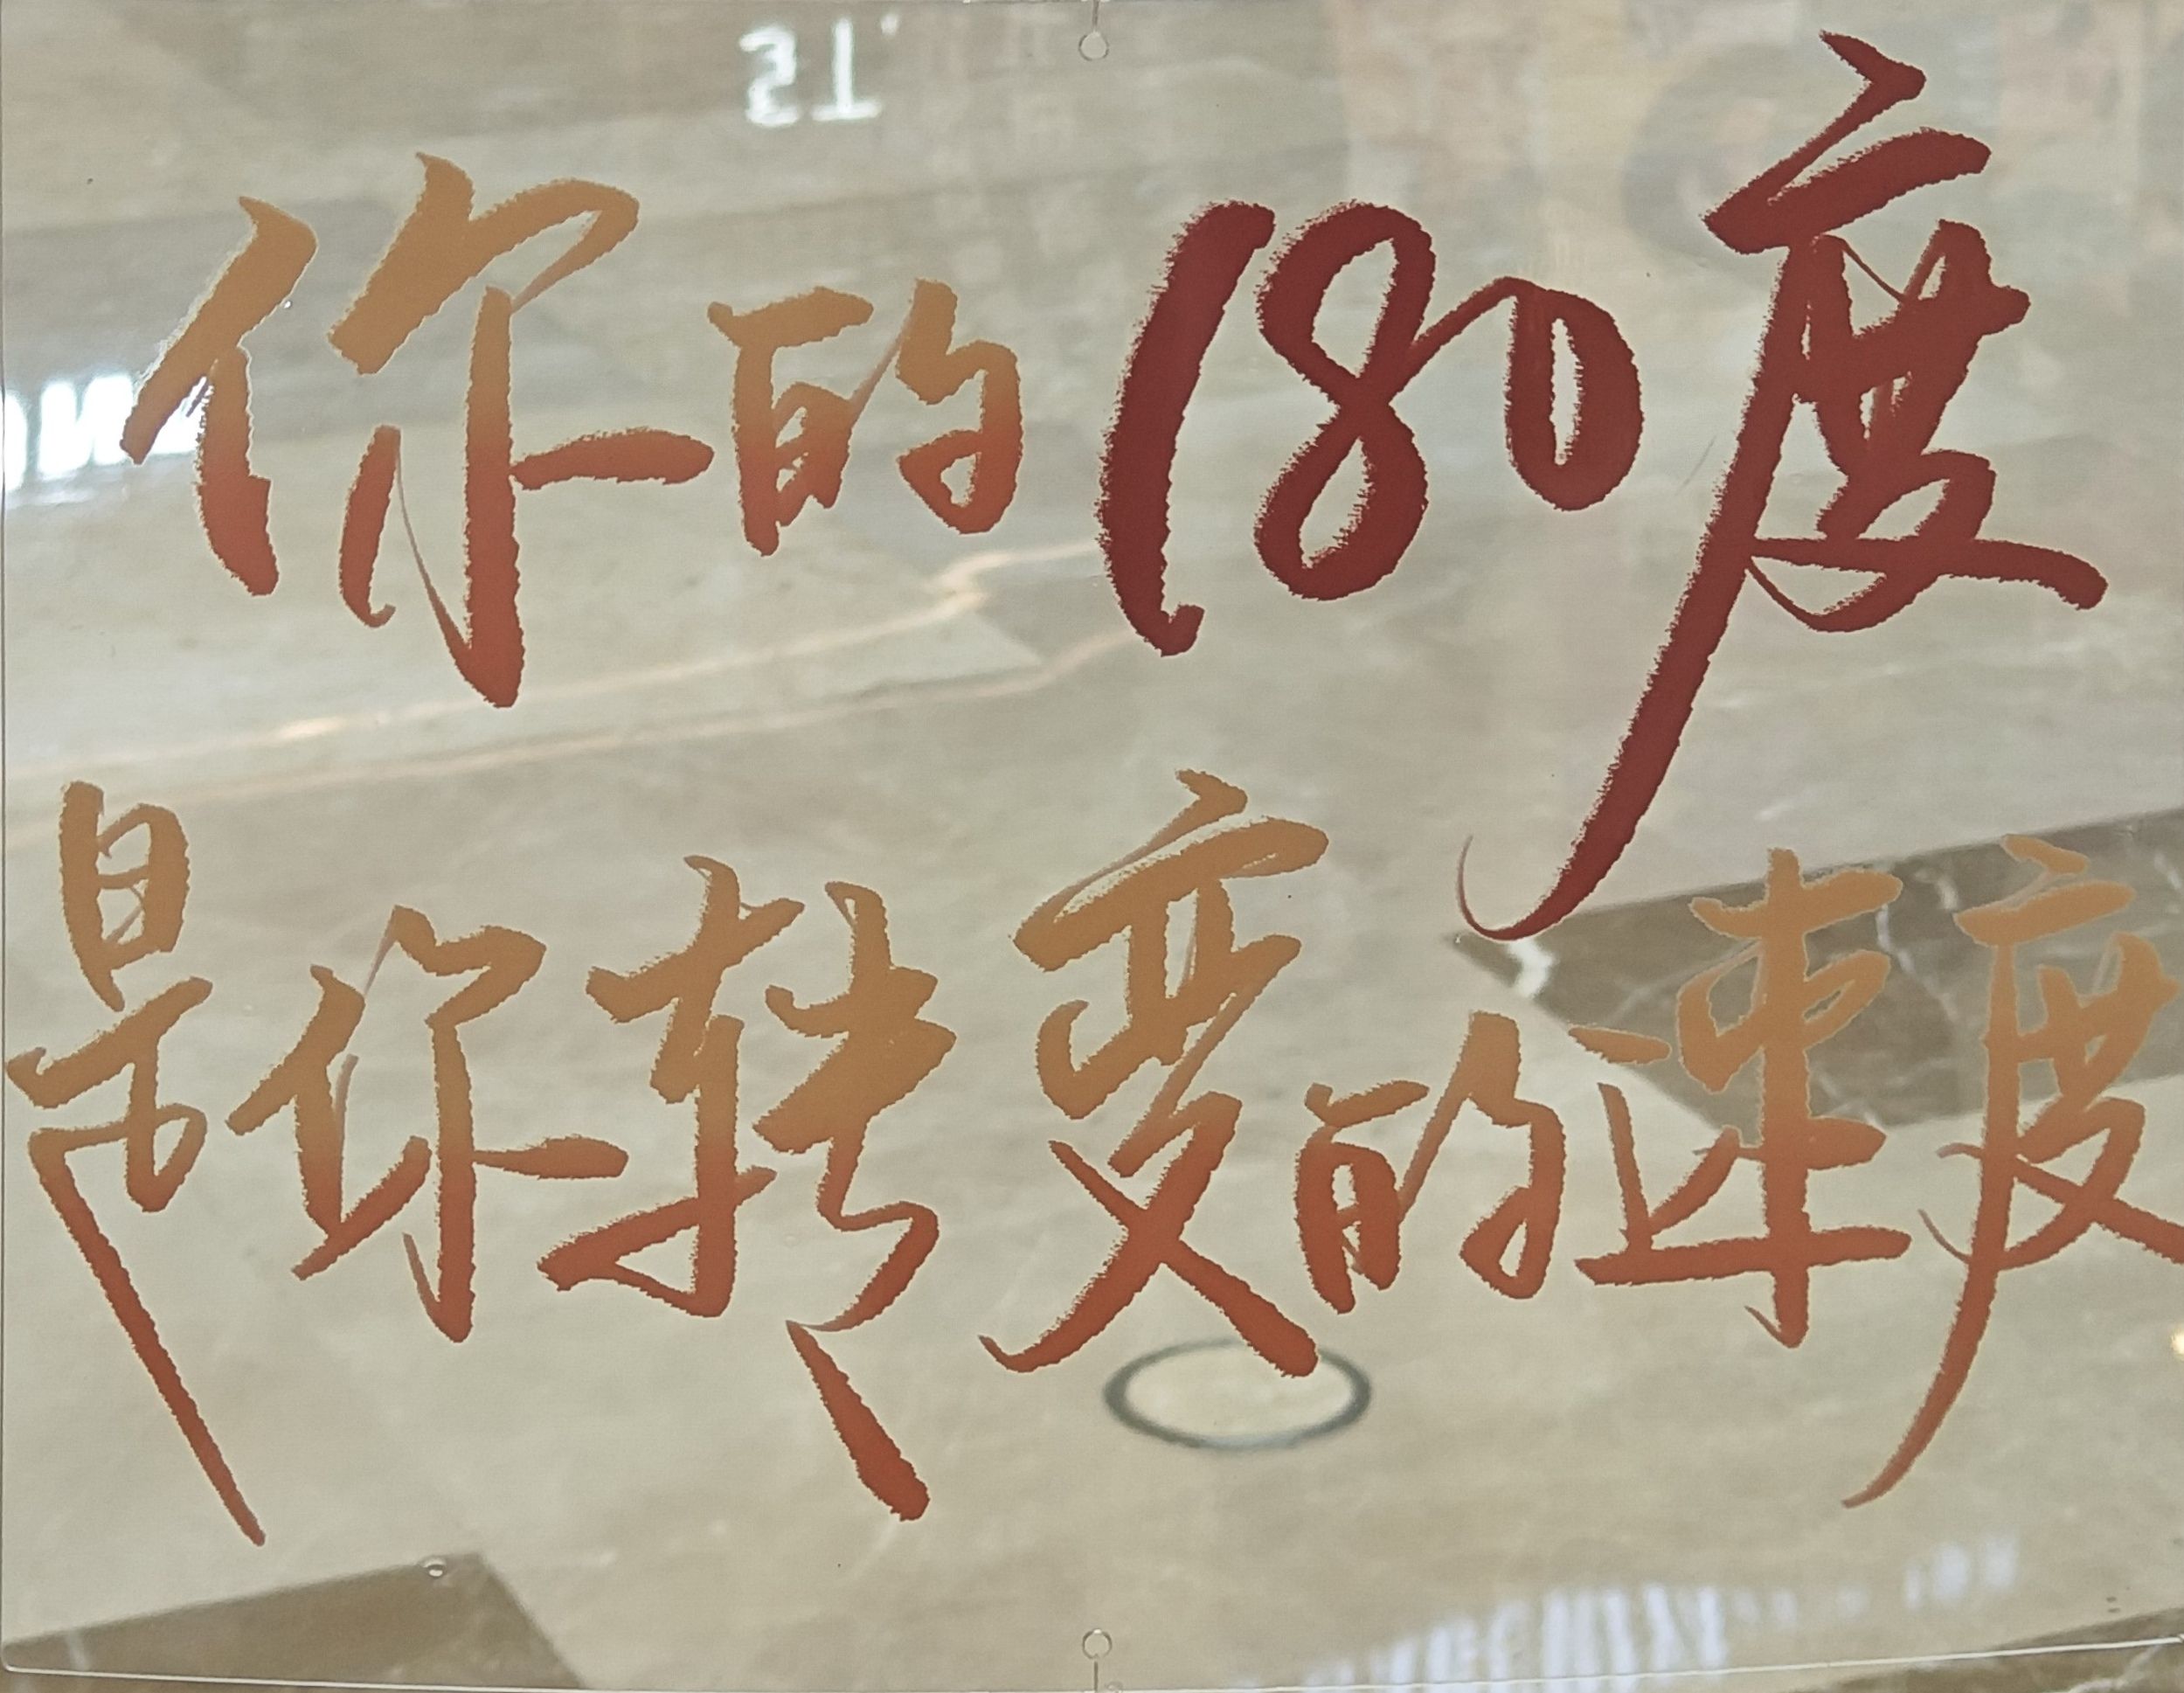 你的180度
是你转变的速度